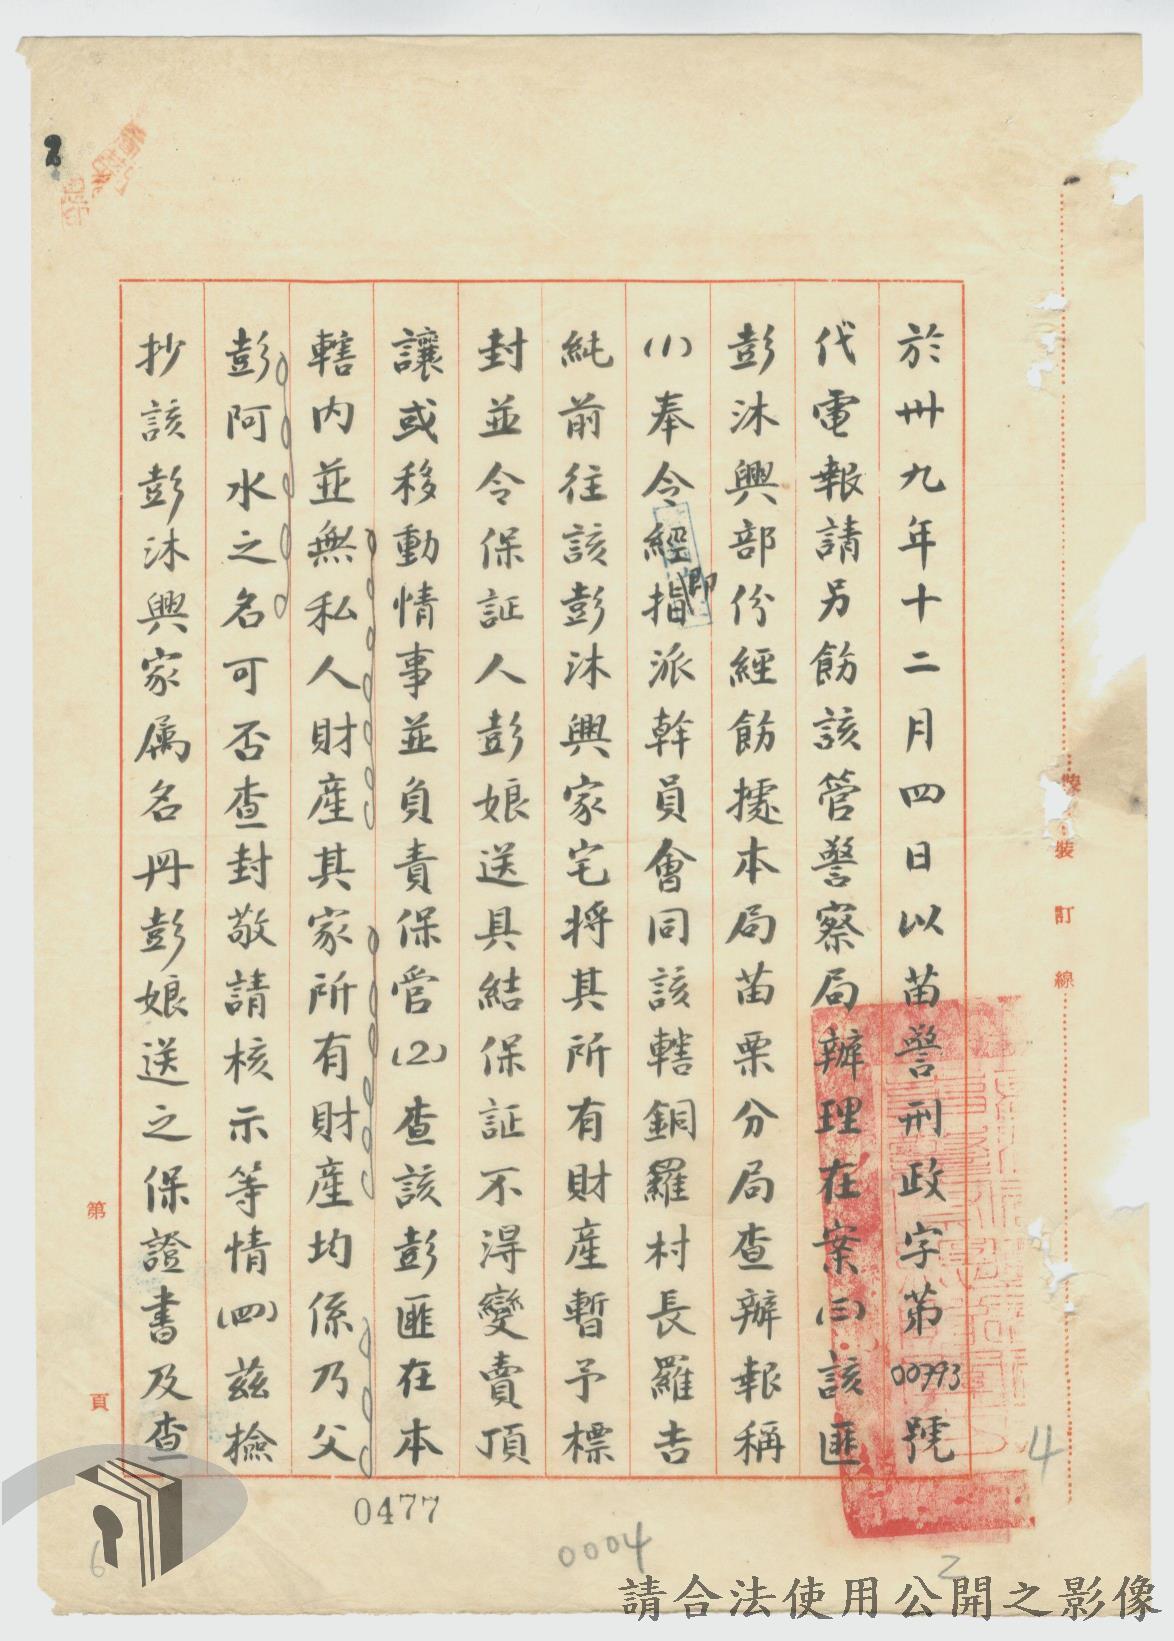 於卅九年十二月四日以苗警刑政字第00793號
代電報請另飭該管警察局辦理在案(三)該匪
彭沐興部份經飭據本局苗栗分局查辦報稱
(1)奉令經指派幹員會同該轄銅羅村長羅吉
即
純前往該彭沐興家宅將其所有財產暫予標
封並令保証人彭娘送具結保証不得變賣頂
讓或移動情事並負責保管(2)查該彭匪在本
轄內並無私人財產其家所有財產均係乃父
彭阿水之名可否查封敬請核示等情(四)茲檢
抄該彭沐興家属名冊彭娘送之保證書及查
裝
訂
線
第
頁
0477
0004
4
2
6
請合法使用公開之影像